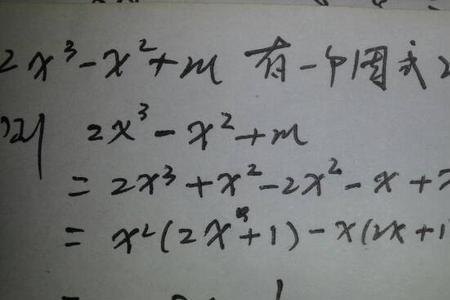 2x³-x²+m 有一个因式2
则 2x³-x²+m
=2x³+x²-2x²-x+
=x²(2x+1)-x(2x+1